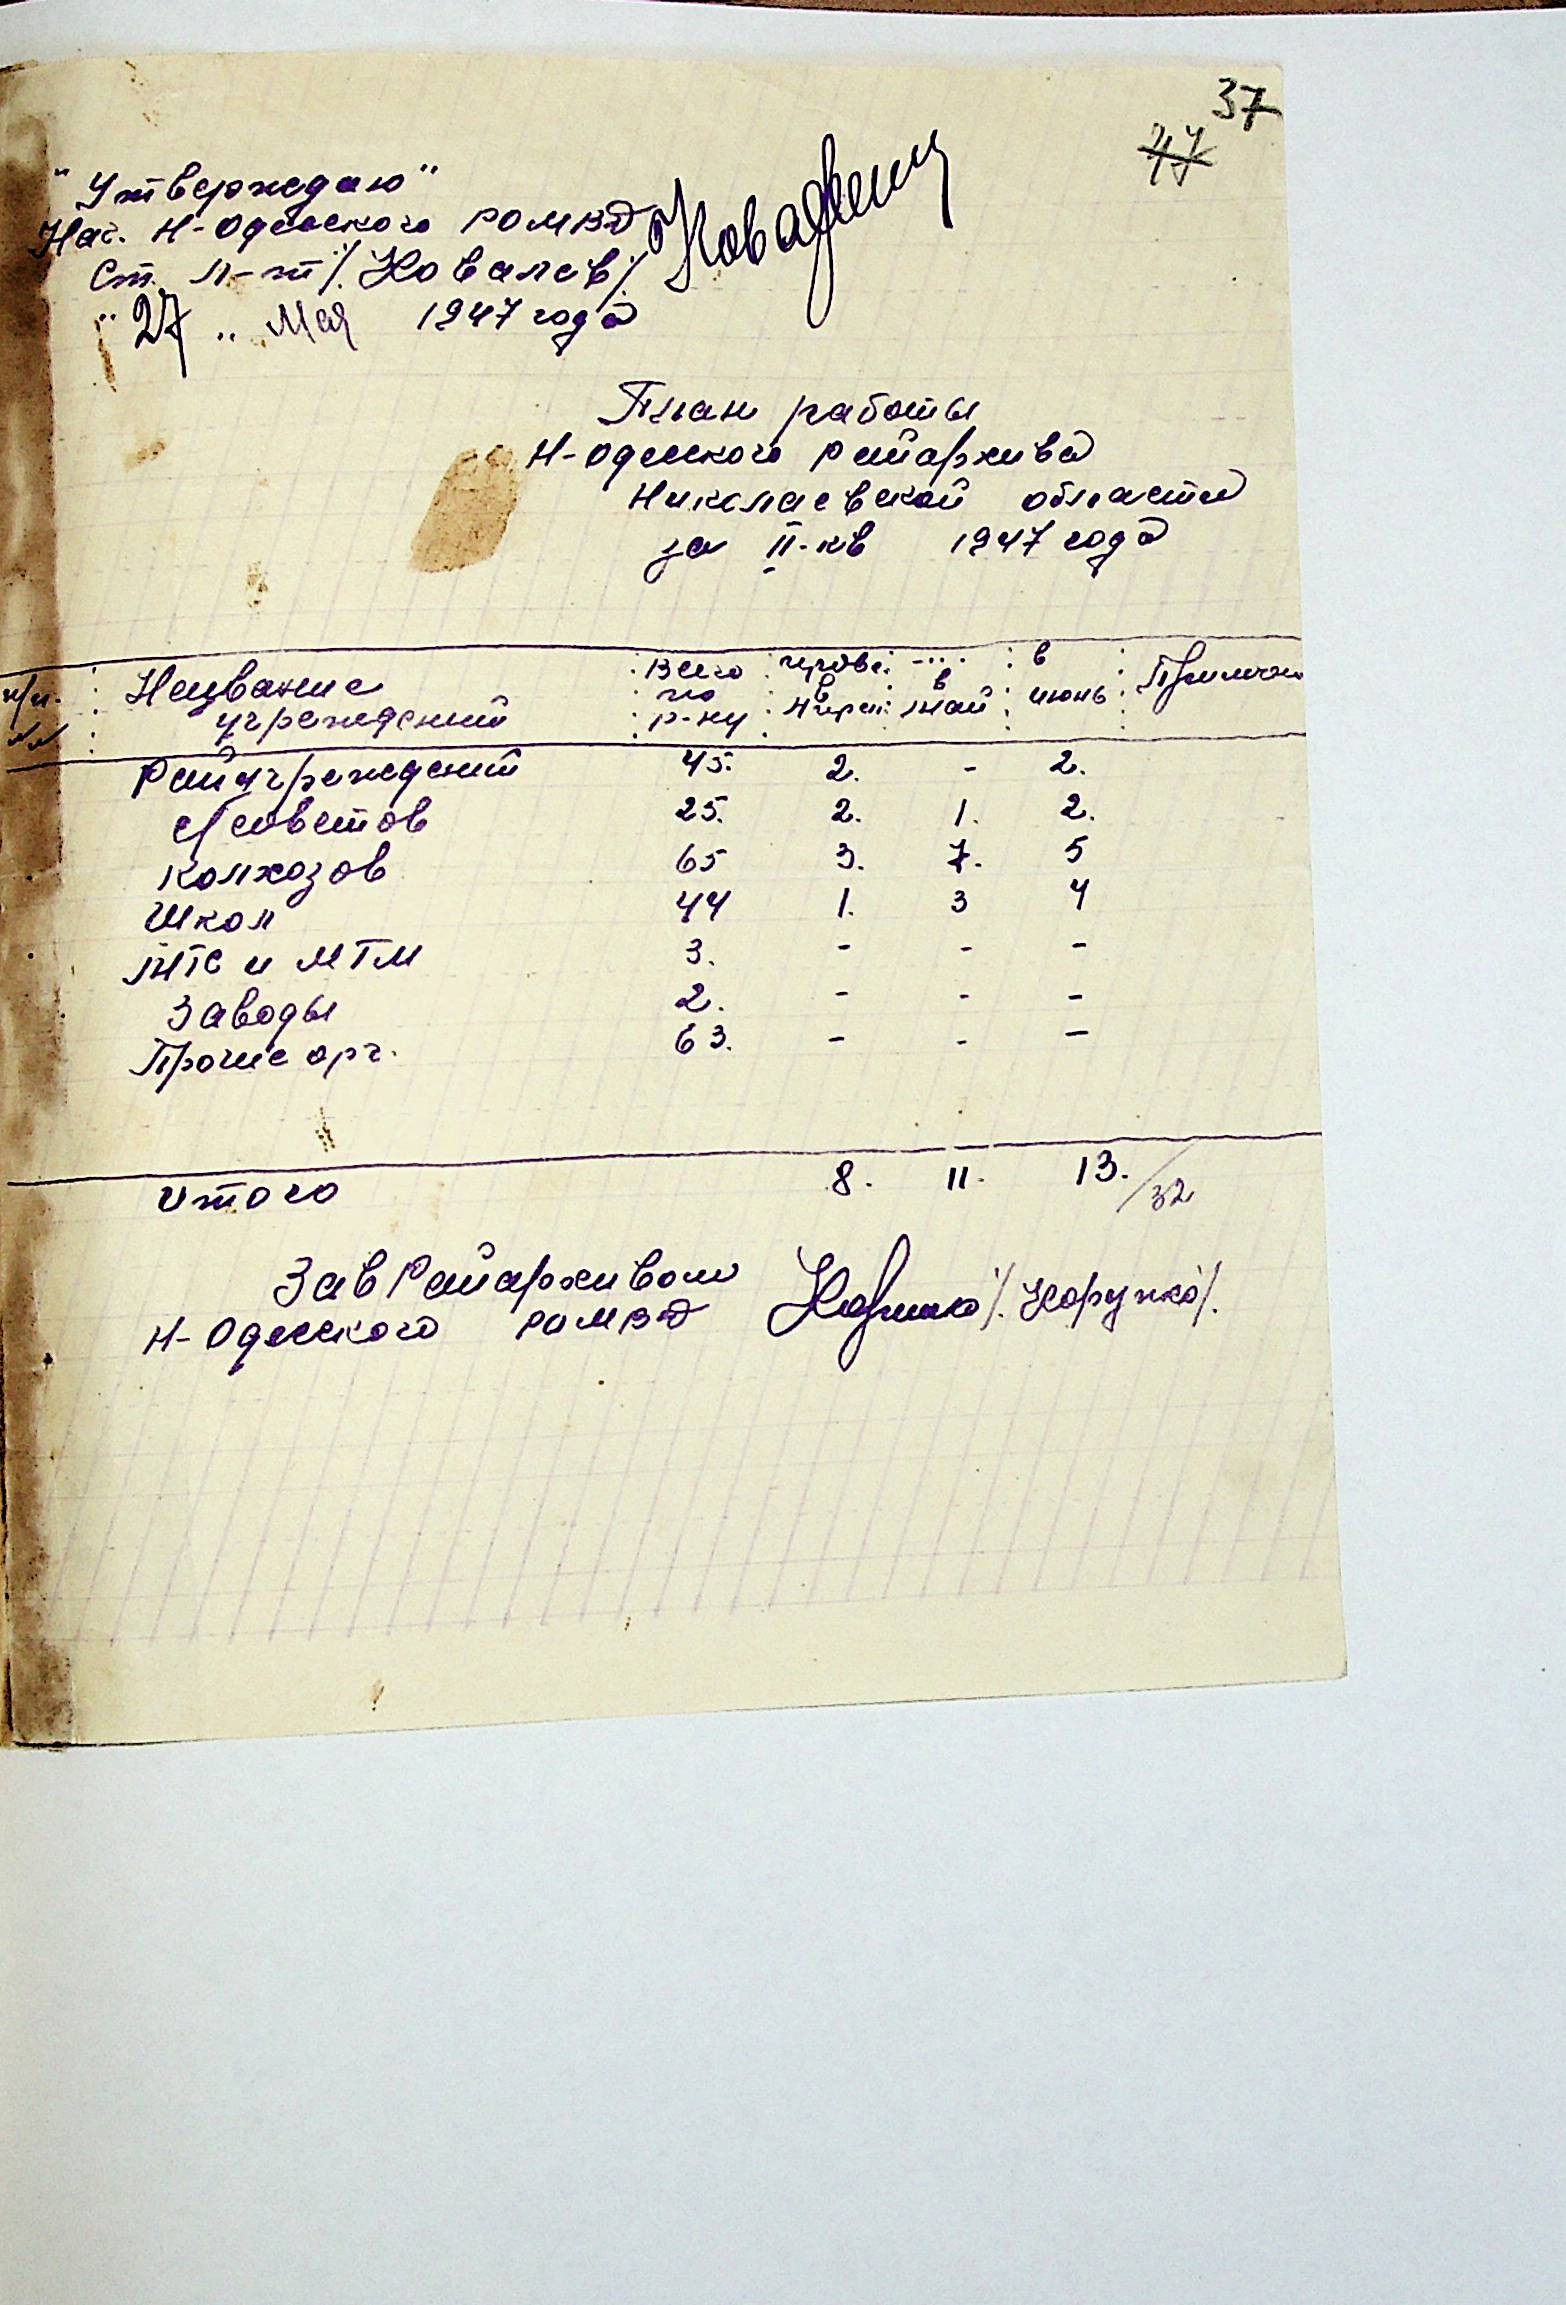 37
47
"Утверждаю"
Нач. Н-Одесского РОМВД
Ст. л-т /. Ковалев /.
"27" Мая 1947 года
План работы
Н-Одесского райархива
Николаевской области
за II-кв 1947 года
п/п. : Название : Всего : прове. : -"- : в : Примечан
№№ : учреждений : по р-ну : в Апрел : в май : июнь :
Райучреждений 45. 2. - 2.
с/советов 25. 2. 1. 2.
колхозов 65 3. 7. 5
Школ 44 1. 3 4
МТС и МТМ 3. - - -
Заводы 2. - - -
Прочие орг. 63. - - -
Итого 8. 11. 13. / 32
Зав Райархивом
Н-Одесского РОМВД /. Корунко /.